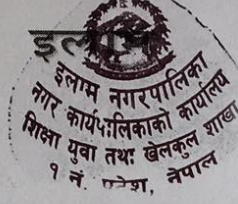 इलाम
इलाम नगरपालिका
नगर कार्यपालिकाको कार्यालय
शिक्षा युवा तथा खेलकुल शाखा
१ नं. प्रदेश, नेपाल